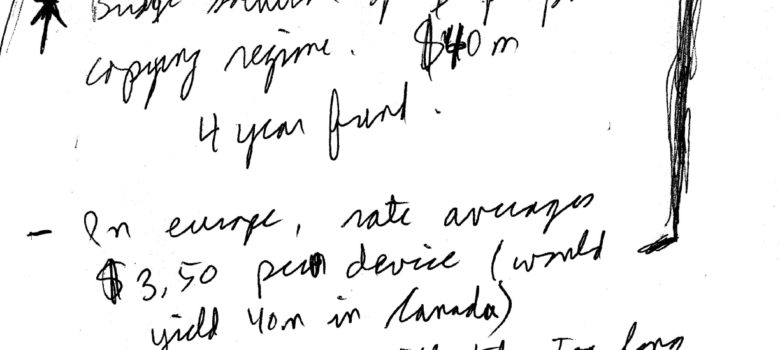 copying regime. $40m
4 year fund.
- In europe, rate averages
$3,50 per device (would
yield 40m in Canada)